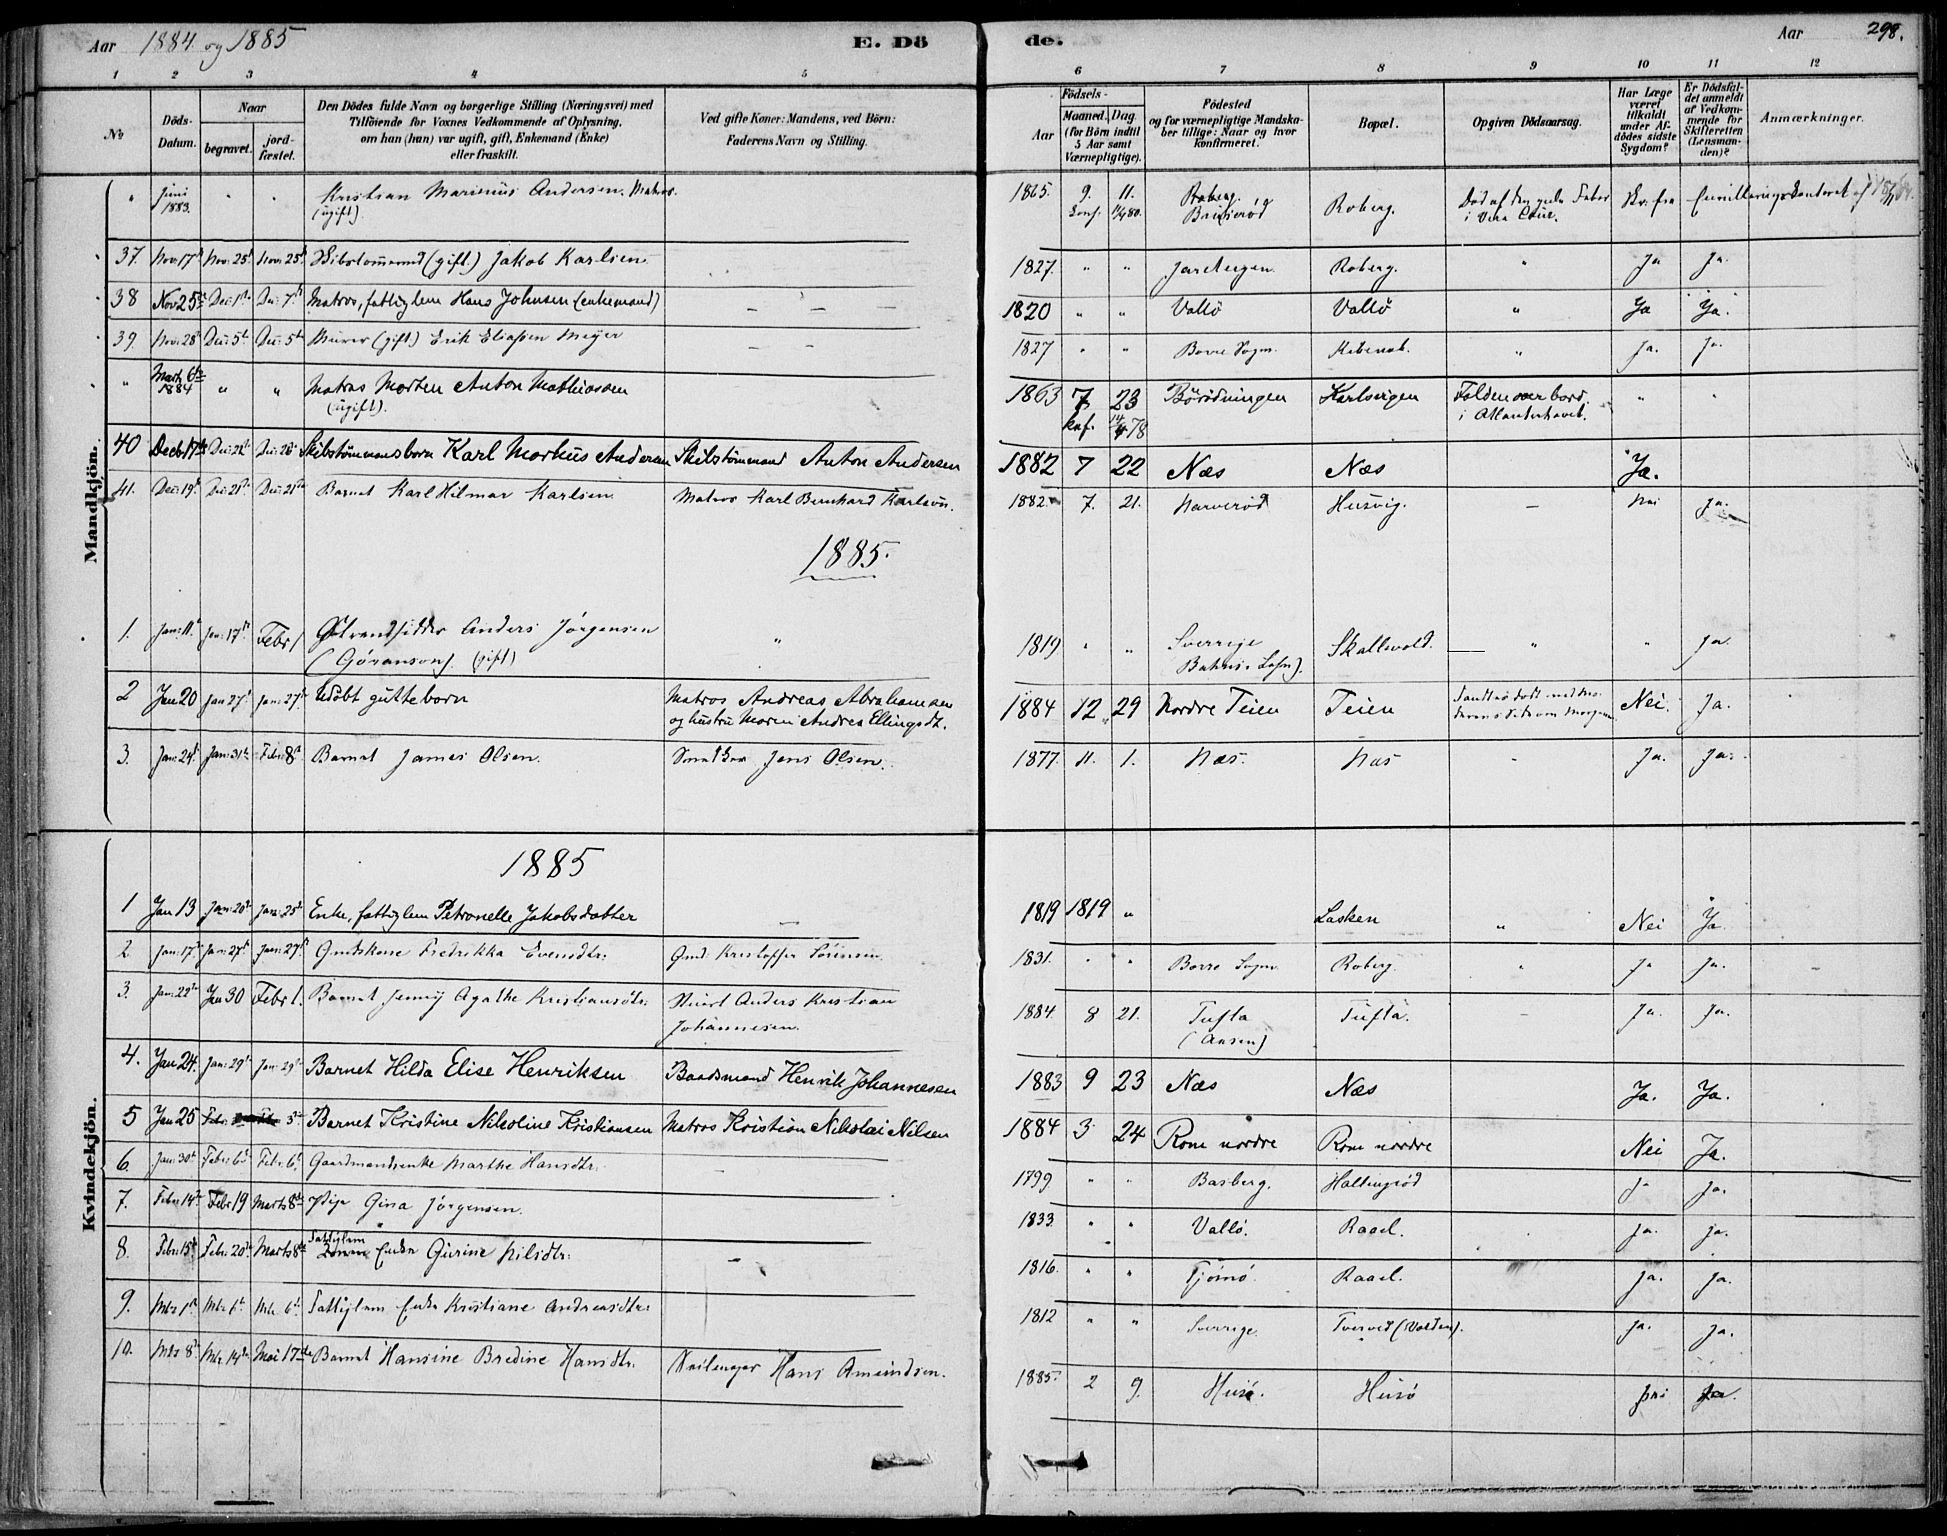 Aar 1884 og 1885 E. Dö de. Aar 298.
1 2 3 4 5 6 7 8 9 10 11 12
No
Döds-Datum.
Naar
begravet.
jord-fæstet.
Den Dödes fulde Navn og borgerlige Stilling (Næringsvei) med
Tilföiende for Voxnes Vedkommende af Oplysning,
om han (hun) var ugift, gift, Enkemand (Enke)
eller fraskilt.
Ved gifte Koner: Mandens, ved Börn:
Faderens Navn og Stilling.
Födsels-
Aar
Maaned. Dag.
(for Börn indtil
5 Aar samt
Værnepligtige).
Födested
og for værnepligtige Mandska-
ber tillige: Naar og hvor
konfirmeret.
Bopæl.
Opgiven Dödsaarsag.
Har Læge
været
tilkaldt
under Af-
dödes sidste
Sygdom?
Er Dödsfal-
det anmeldt
af Vedkom-
mende for
Skifteretten
(Lensman-
den)?
Anmærkninger.
Mandkjön.
" Juni 1883. " " Kristian Marinus Andersen. Matros. (ugift) 1865. 9. 11. Roberg. Roberg.
37. Nov: 17 Nov: 25 Nov: 25 (gift) Jakob Karlsen 1827. " " Roberg. " Ja Ja.
38 Nov 25 Dec: 1 Dec: 7 Matros, fattiglem Hans Johnsen (enkemand) – – – 1820 " " Vallö Vallö " Ja Ja.
39. Nov: 28 Dec: 5 Dec: 5 Murer (gift) Erik Eliassen Meyer – – 1827 " " Borre Sogn. " Ja. Ja.
" Marts 6te 1884 " " Matros Morten Anton Mathiasen (ugift). 1863 7 23 Karlsvigen Falden over bord i Atlanterhavet. " "
konf. 14/4 78
40 Decb 17de Dec: Dec: 26 Skibstømmandsbarn Karl Markus Andersen Skibstømmand Anton Andersen 1882 7 22 Næs Næs Ja.
41. Dec: 19 Dec: 21 Dec: 21 Barnet Karl Hilmar Karlsen Matros Karl Bernhard Karlsen. 1882 7. 21. Narverød Husvig. – Nei Ja.
1885.
1. Jan: 11. Jan: 17 Febr 1 Strandsidder Anders Jörgensen (Göranson). (gift) " 1819 " " Sverrige Skallevold. " " Ja.
2 Jan 20 Jan 27 Jan: 27 Udöbt gutteborn Matros Andreas Abrahamsen
og hustru Maren Andrea Ellingsdt. 1884 12 29 Nordre Teien Teien Nei. Ja.
3. Jan: 24 Jan: 31 Febr: 8 Barnet James Olsen. Jens Olsen. 1877. 11. 1. Næs. Næs Ja. Ja.
Kvindekjön.
1885
1 Jan 13 Jan: 20 Jan: 25 Enke, fattiglem Petronelle Jakobsdatter – 1819 1819 " Lasken " Nei Ja
2 Jan: 17 Jan: 27 Jan: 27. Gmdskone Fredrikka Evensdtr: Gmd. Kristoffer Sörensen 1831. " " Borre Sogn Roberg. " Ja Ja.
3. Jan: 22 Jan 30 Febr 1. Barnet Jenny Agathe Kristiansdtr: Anders Kristian
Johannesen. 1884. 8 21. Tufta (Aasen) Tufta. – Ja. Ja.
4. Jan 24. Jan: 29 Jan: 29 Barnet Hilda Elise Henriksen Baadsmand Henrik Johannesen 1883 9 23 Næs Næs Ja. Ja.
5 Jan 25 Febr: 5 Barnet Kristine Nikoline Kristiansen Matros Kristian Nikolai Nilsen 1884 3 24 Rom nordre Rom nordre Nei Ja.
6. Jan: 30 Febr: 6 Febr: 6 Gaardmandsenke Marthe Hansdtr. – 1799 " " Basberg. Hallingrød Ja Ja.
7. Febr: 14 Febr 19 Marts 8 Pige Gina Jörgensen. 1833 " " Vallö. Raael. Ja. Ja.
8. Febr: 15 Febr: 20 Marts 8 Fattiglem Enke Gurine Nilsdtr: – 1816. " " Tjömö. Raael. Ja. Ja.
9. Mts 1 Mts 6 Mts. 6 Fattiglem Enke Kristiane Andreasdtr: 1812 " " Sverrige. Tverved (Valden). Ja. Ja.
10. Mts 8 Mts 14 Mai 17de Barnet Hansine Bredine Hansdtr. Hans Amundsen. 1885. 2 9. Husö. Husö Nei Ja.